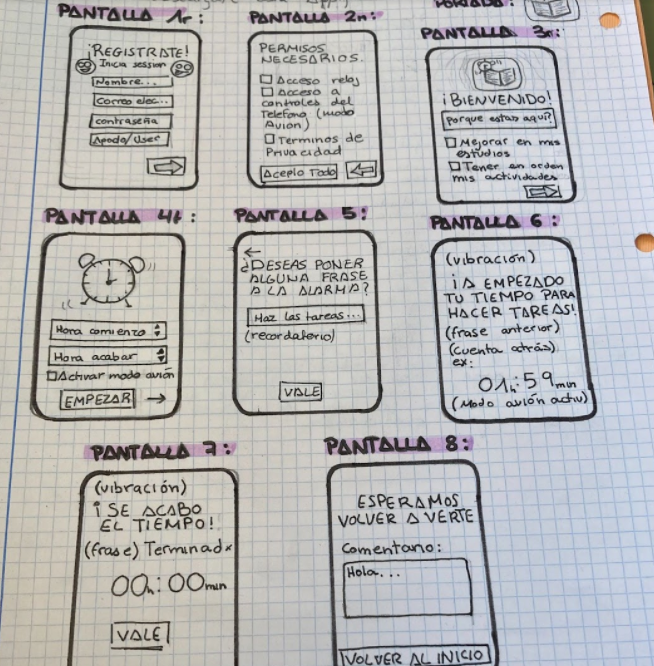 PANTALLA 1r:
¡REGISTRATE!
Inicia session
Nombre...
Correo elec...
contraseña
Apodo/User
PANTALLA 2n:
PERMISOS
NECESARIOS.
Acceso reloj
Acceso a
controles del
Telefono (modo
Avion)
Terminos de
Privacidad
Acepto Todo
PORTADA:
PANTALLA 3r:
¡BIENVENIDO!
Porque estas aquí?
Mejorar en mis
estudios
Tener en orden
mis actividades
PANTALLA 4t:
Hora comienzo
Hora acabar
Activar modo avión
EMPEZAR
PANTALLA 5:
¿DESEAS PONER
ALGUNA FRASE
A LA ALARMA?
Haz las tareas...
(recordaterio)
VALE
PANTALLA 6:
(vibración)
¡A EMPEZADO
TU TIEMPO PARA
HACER TAREAS!
(frase anterior)
(cuenta atrás)
ex:
01h:59min
(Modo avión activ)
PANTALLA 7:
(vibración)
¡SE ACABO
EL TIEMPO!
(frase) Terminadx
00h:00min
VALE
PANTALLA 8:
ESPERAMOS
VOLVER A VERTE
Comentario:
Hola...
VOLVER AL INICIO